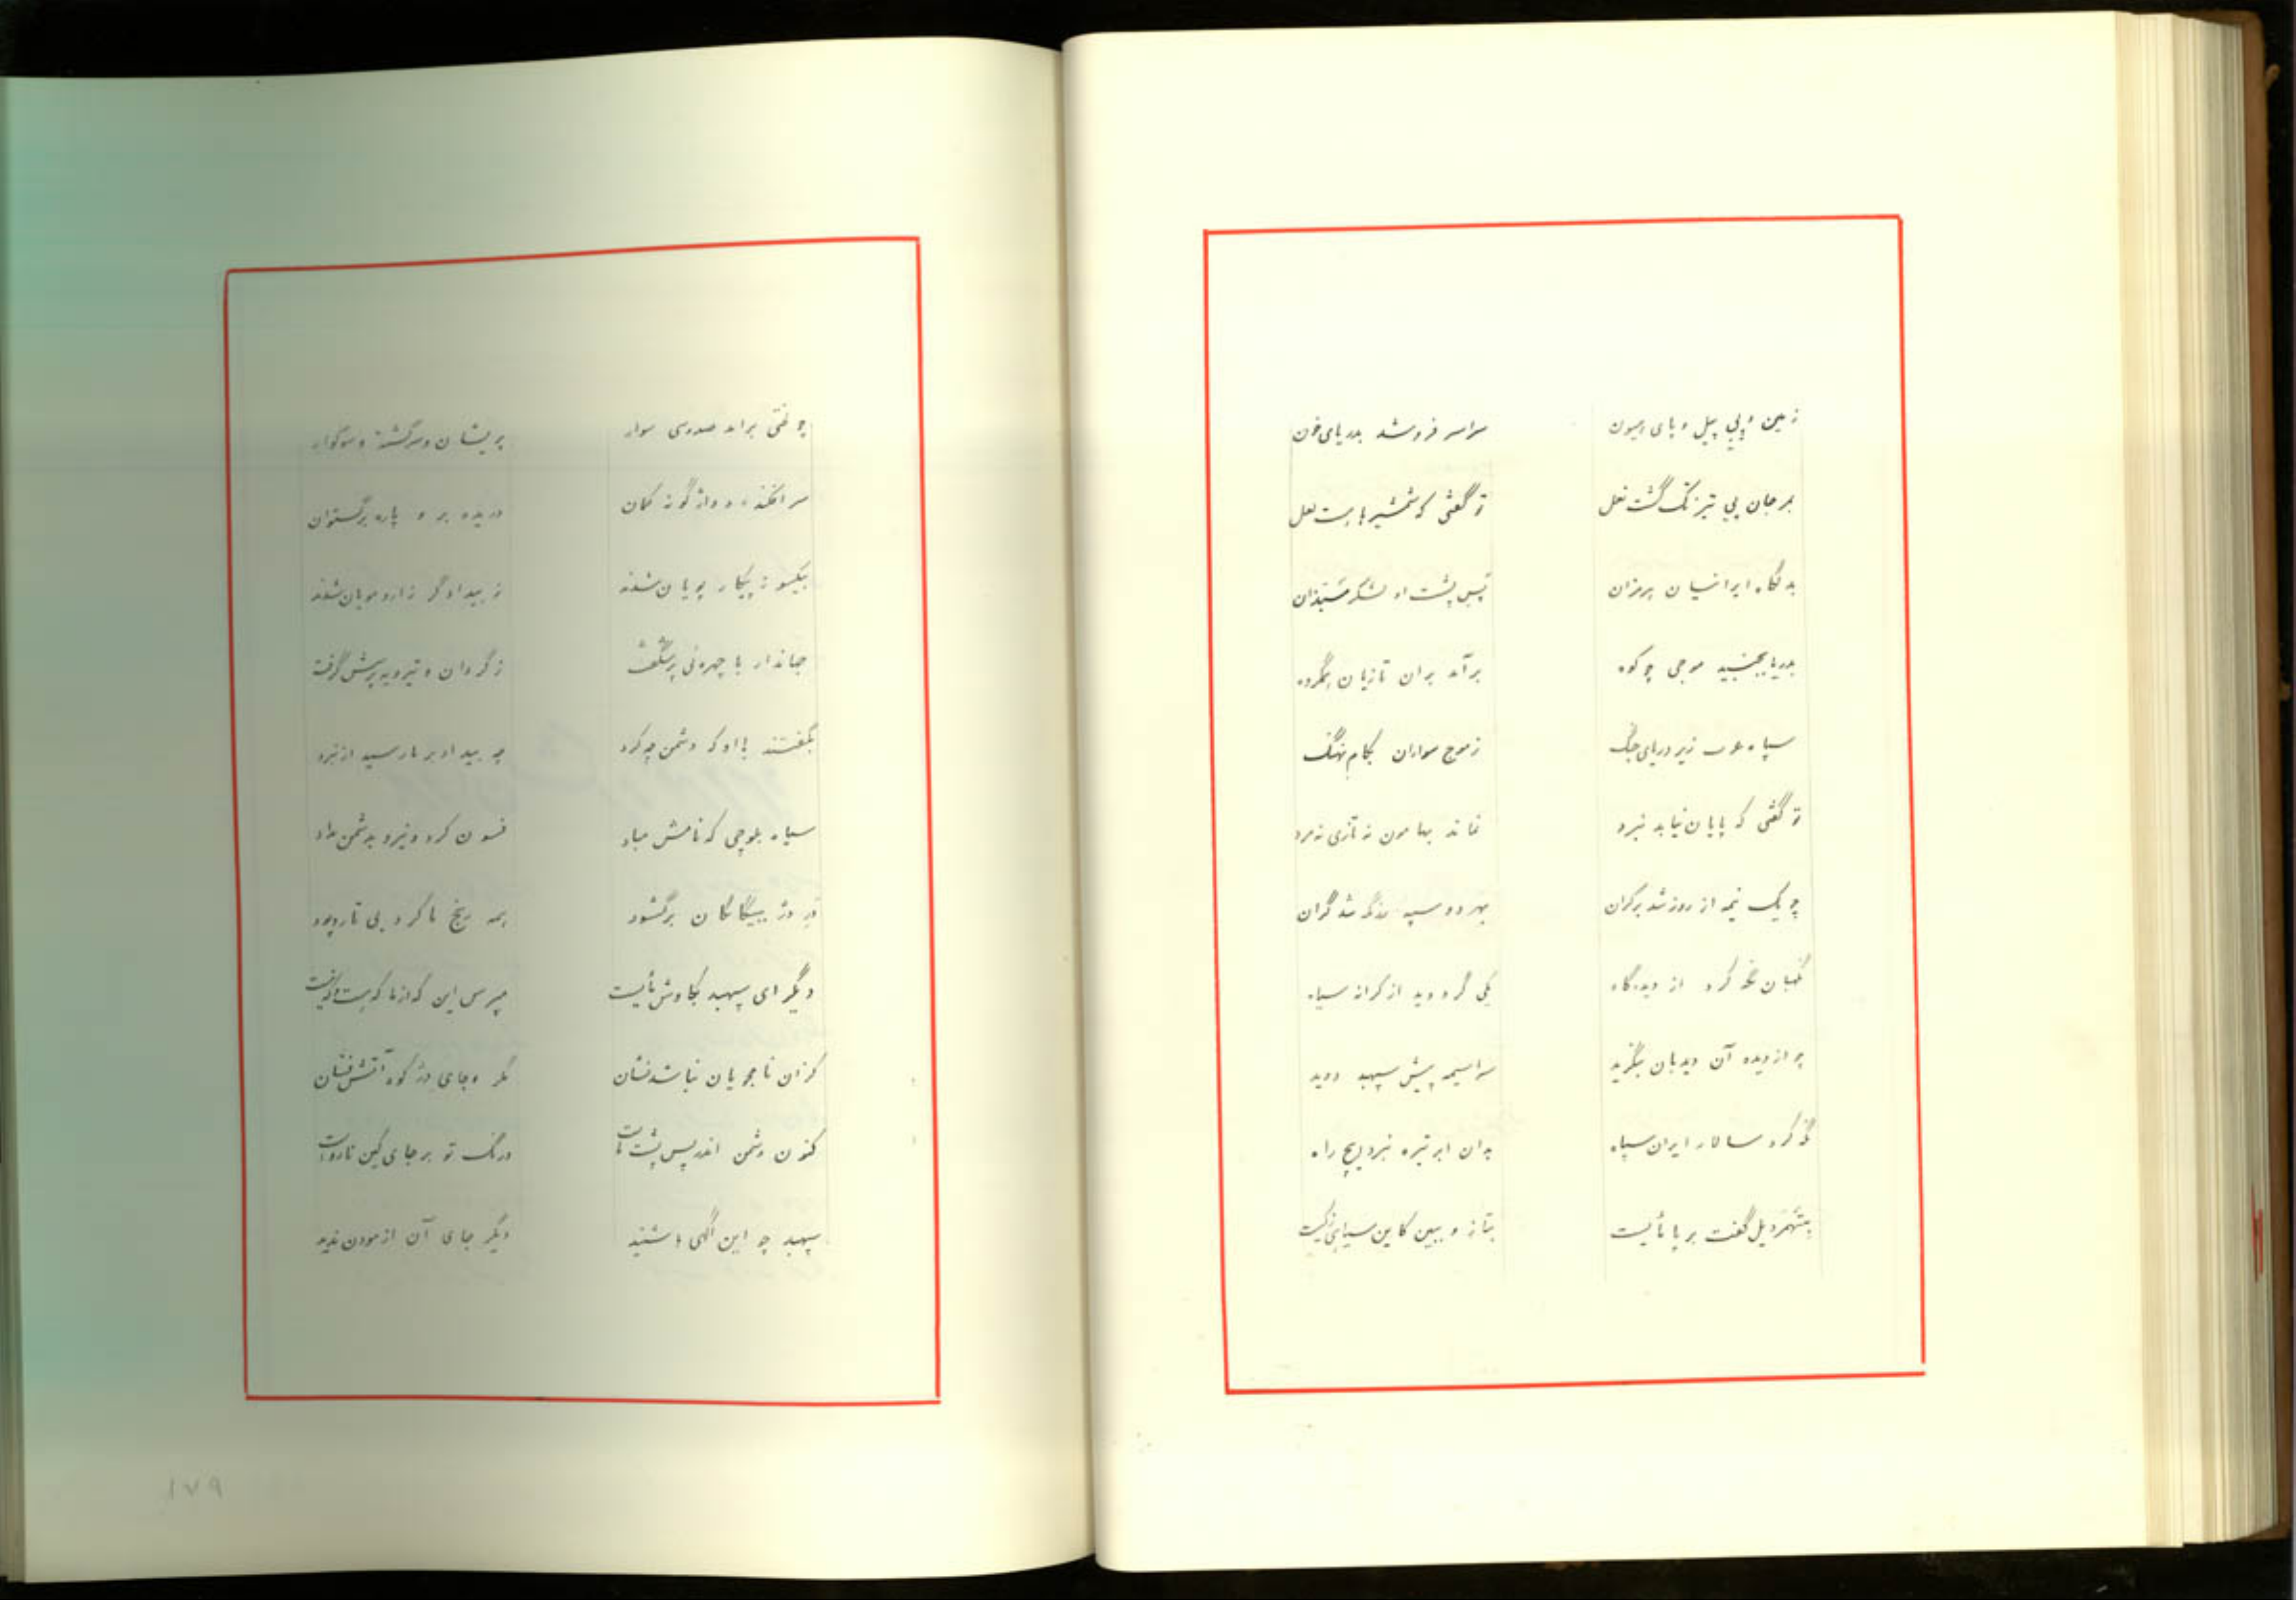 زمین و پی پیل و پای هیون سراسر فرو شد بدریای خون
بمرجان پی تیز تک گشت نعل تو گفتی که شمشیرها بست لعل
بدنگاه ایرانیان هرمزان پس پشت او لشکر
بدریا بجنبید موجی چو کوه برآمد بران تازیان همگروه
سپاه عرب زیر دریای جنگ ز موج سواران بکام نهنگ
تو گفتی که پایان نیابد نبرد نماند بهامون نه تازی نه مرد
چو یک نیمه از روز شد بر کران بهر دو سپه شد گران
نگهبان نگه کرد از دیدگاه یکی گرد دید از کرانه سیاه
چو از دیده آن دیدبان بنگرید سراسیمه پیش سپهبد دوید
نگه کرد سالار ایران سپاه بدان ابر تیره نبرد ایچ راه
گفت بر پا مأیست بتاز و ببین کاین سیاهی ز کیست
چو لختی براند صدوسی سوار پریشان و سرگشته و سوگوار
سر افکنده و واژگونه کمان دریده بر و پاره برگستوان
بیکسو ز پیکار پویان شدند ز بیدادگر زار و مویان شدند
جهاندار با چهره‌ئی پرشگفت ز گردان و تیرویه پرسش گرفت
بگفتند با او که دشمن چه کرد چه بیداد بر ما رسید از نبرد
سیاه بلوچی که نامش مباد فسون کرد و نیرو بدشمن بداد
در دژ ببیگانگان برگشود همه رنج ما کرد بی تار و پود
دگر ای سپهبد بکاوش مأیست مپرس این که از ما که هست و که نیست
کزان نامجویان نباشد نشان مگر جای دژ کوه آتش فشان
کنون دشمن اندر پس پشت ماست درنگ تو بر جای کین نارواست
سپهبد چو این آگهی‌ها شنید دگر جای آن آزمودن ندید
۱۷۹